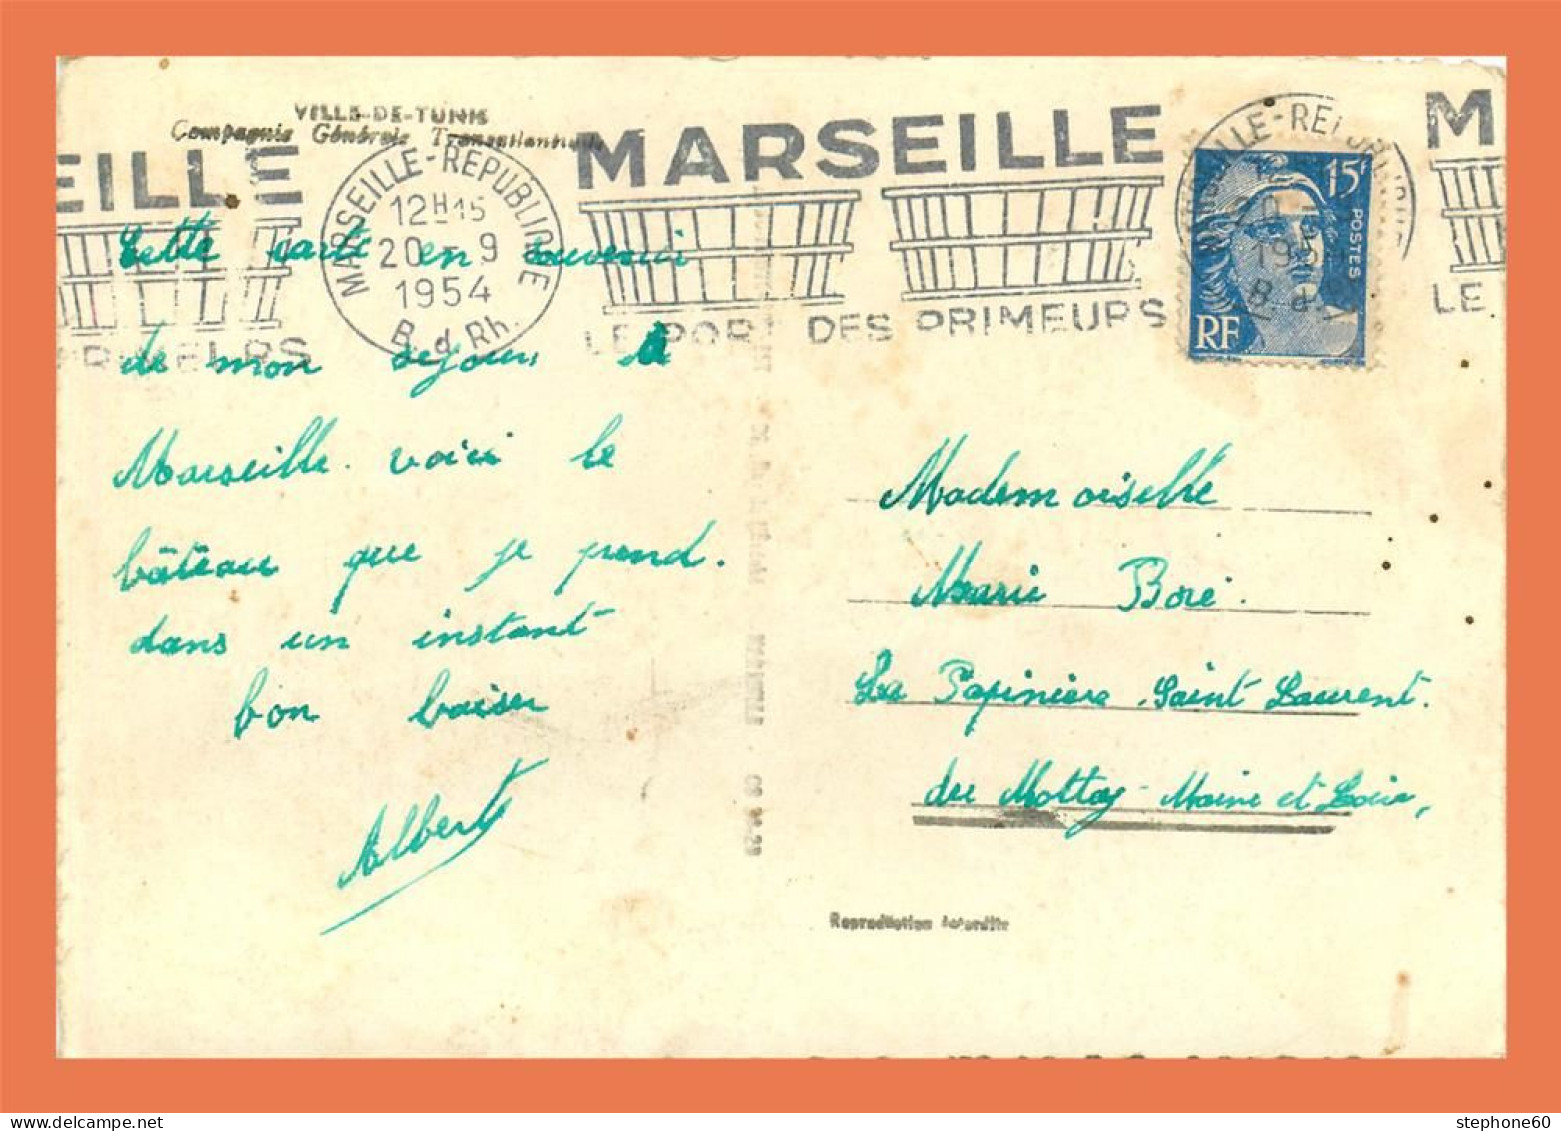 VILLE-DE-TUNIS
Compagnie Générale Transatlantique
EILLE
MARSEILLE
M
MARSEILLE-REPUBLIQUE
12H15
20 - 9
1954
B. d. Rh.
LE PORT DES PRIMEURS
LE
PRIMEURS
15F
POSTES
RF
1954
B. d.
Cette carte en souvenir
de mon sejour a
Marseille. voici le
bâteau que je prend.
dans un instant
bon baiser
Albert
Mademoiselle
Marie Boré.
La Papiniere. Saint Laurent.
du Mottay - Maine et Loire,
Reproduction interdite
stephone60